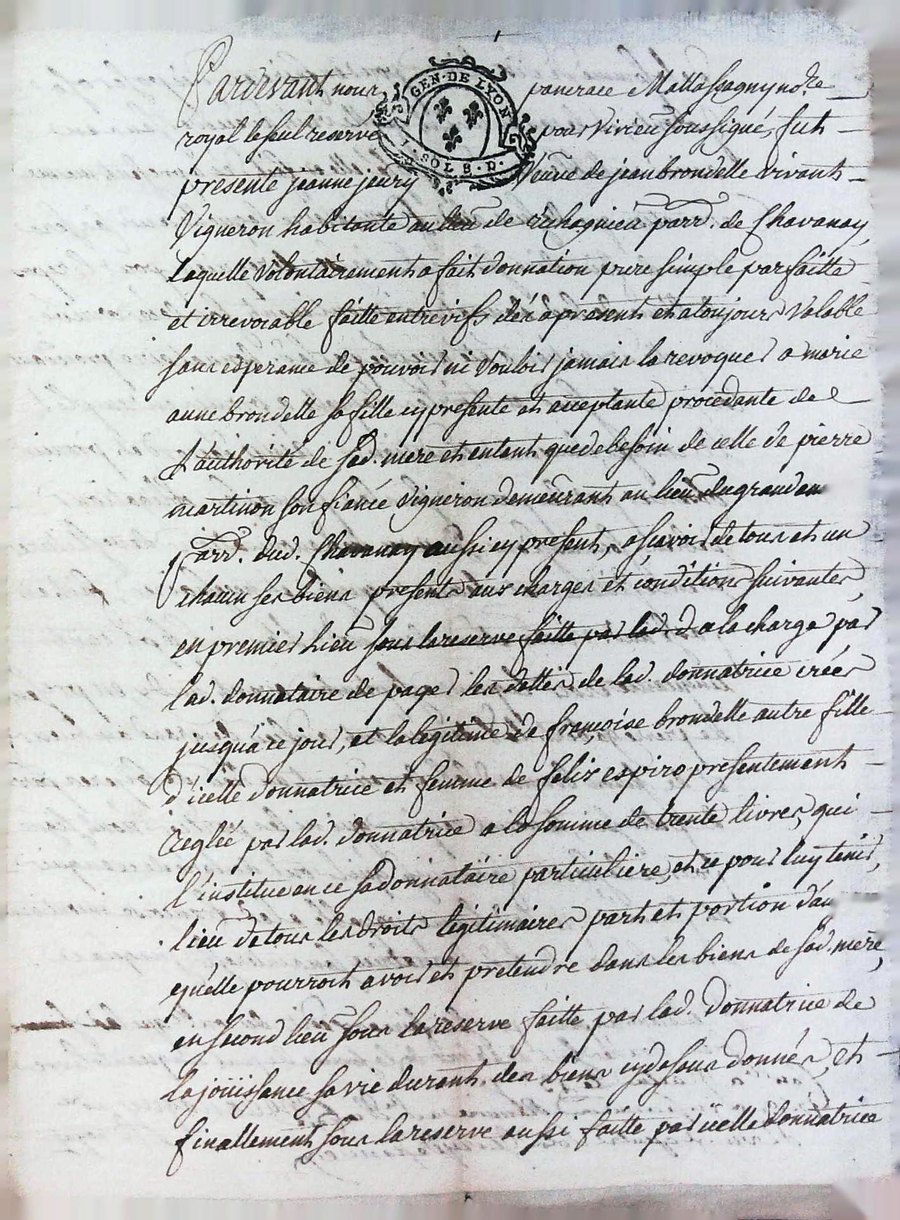 Pardevant nous pancrace Mattassagny no.re
GEN. DE LYON
1. SOL 8. D.
royal le seul reservé pour Virieu soussigué, fut
presente jeanne jeury Veuve de jean brondelle vivant
Vigneron habitante au lieu de parr. de Chavanay,
Laquelle volontairement a fait donnation pure simple parfaitte
et irrevocable faitte entrevifs dés a present et a toujours valable
sans esperance de pouvoir ni vouloir jamais la revoquer a marie
anne brondelle sa fille cy presente et acceptante procedante de
L'authorité de sad. mere et entant que de besoin de celle de pierre
martinon son fiancé vigneron demeurant au lieu
parr. dud. Chavanay aussi cy present, a scavoir de tous et un
chacun ses biens presents aux charges et conditions suivantes,
en premier lieu sous la reserve faitte par lad. d a la charge par
lad. donnataire de payer les dettes de lad. donnatrice créés
jusqu'a ce jour, et la legitime de françoise brondelle autre fille
d'icelle donnatrice et femme de felix espiro presentement
reglée par lad. donnatrice a la somme de trente livres, qui
l'institue en ce sa donnataire particuliere, et ce pour luy tenir
lieu de tous les droits legitimaires part et portion
qu'elle pourroit avoir et pretendre dans les biens de sad. mere,
en second lieu sous la reserve faitte par lad. donnatrice de
la joüissance sa vie durant des biens cy dessus donnés, et
finallement sous la reserve aussi faitte par icelle donnatrice